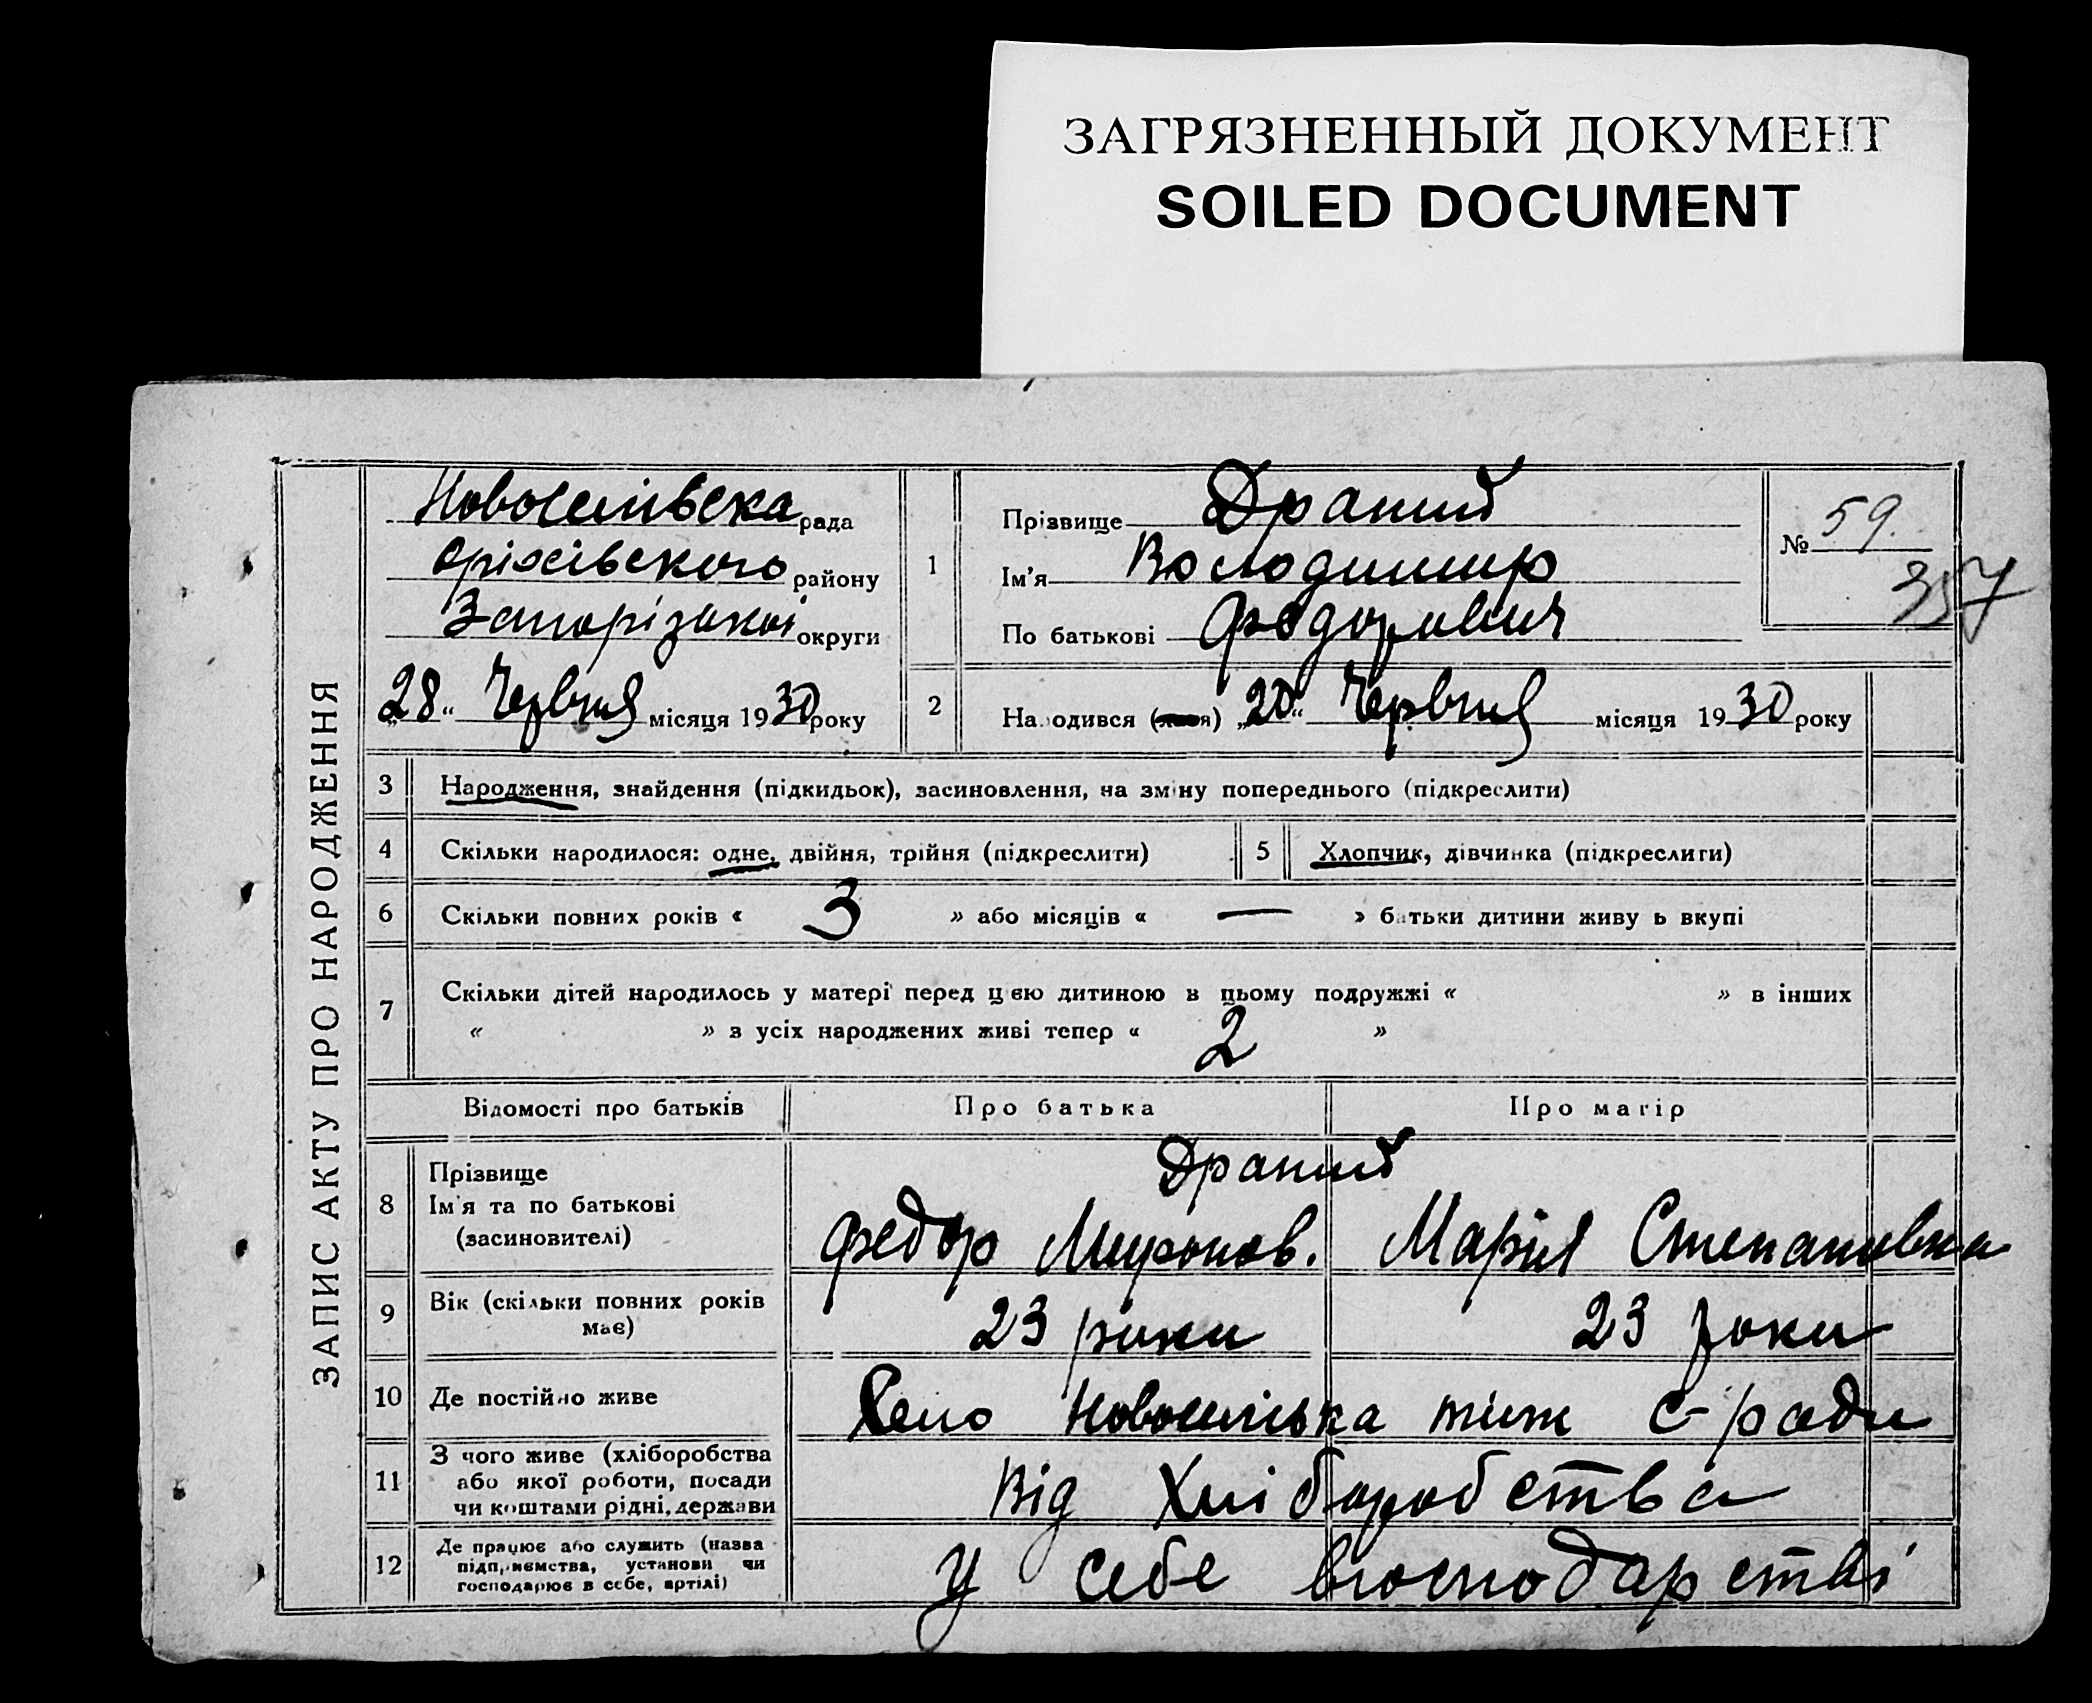 ЗАГРЯЗНЕННЫЙ ДОКУМЕНТ
SOILED DOCUMENT
ЗАПИС АКТУ ПРО НАРОДЖЕННЯ
Новоселівська рада
Оріхівського району
Запорізької округи
„28“ Червня місяця 1930 року
1
Прізвище Драний
Ім'я Володимир
По батькові Федорович
№ 59.
357
2 Народився (лася) „20“ Червня місяця 1930 року
3 Народження, знайдення (підкидьок), засиновлення, на зміну попереднього (підкреслити)
4 Скільки народилося: одне, двійня, трійня (підкреслити) 5 Хлопчик, дівчинка (підкреслити)
6 Скільки повних років « 3 » або місяців « — » батьки дитини живуть вкупі
7 Скільки дітей народилось у матері перед цією дитиною в цьому подружжі « » в інших
« » з усіх народжених живі тепер « 2 »
Відомості про батьків Про батька Про матір
8 Прізвище Драний
Ім'я та по батькові
(засиновителі) Федор Миронов. Марія Степановна
9 Вік (скільки повних років має) 23 роки 23 роки
10 Де постійно живе Село Новоселівка тиж с-ради
11 З чого живе (хліборобства
або якої роботи, посади
чи коштами рідні, держави Від Хліборобства
12 Де працює або служить (назва
підприємства, установи чи
господарює в себе, артілі) У себе вгосподарстві